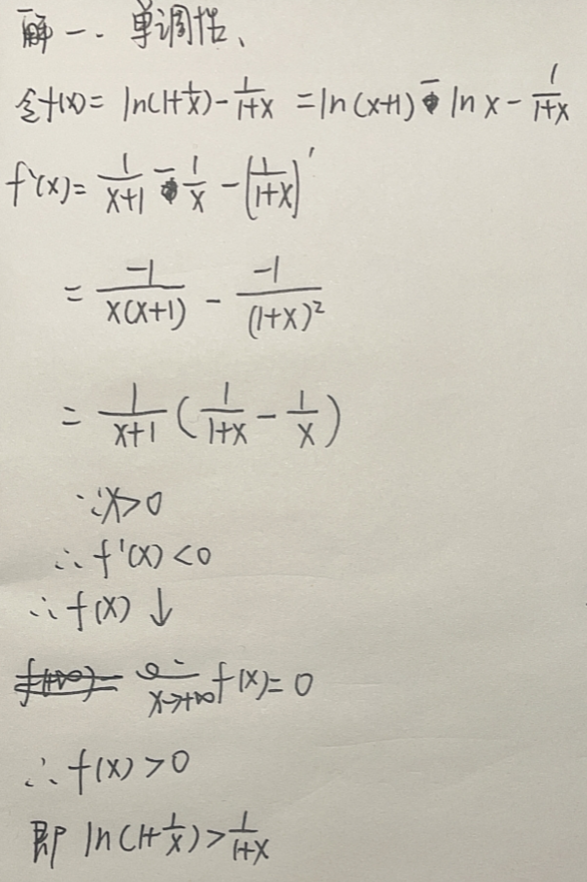 解一. 单调性、
令f(x) = ln(1+1/x) - 1/(1+x) = ln(x+1) - ln x - 1/(1+x)
f'(x) = 1/(x+1) - 1/x - (1/(1+x))'
= -1/(x(x+1)) - -1/(1+x)²
= 1/(x+1) (1/(1+x) - 1/x)
∵x>0
∴f'(x)<0
∴f(x)↓
x→+∞ f(x)=0
∴f(x)>0
即 ln(1+1/x) > 1/(1+x)